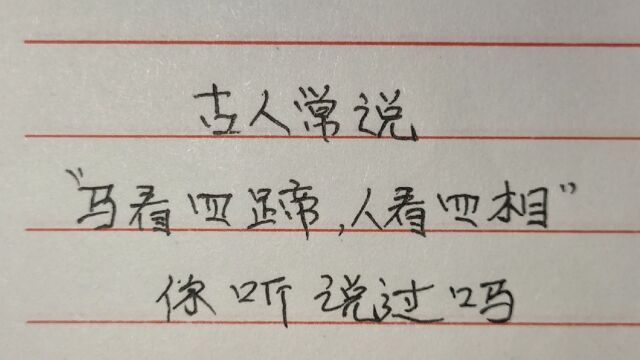 古人常说
“马看四蹄,人看四相”
你听说过吗